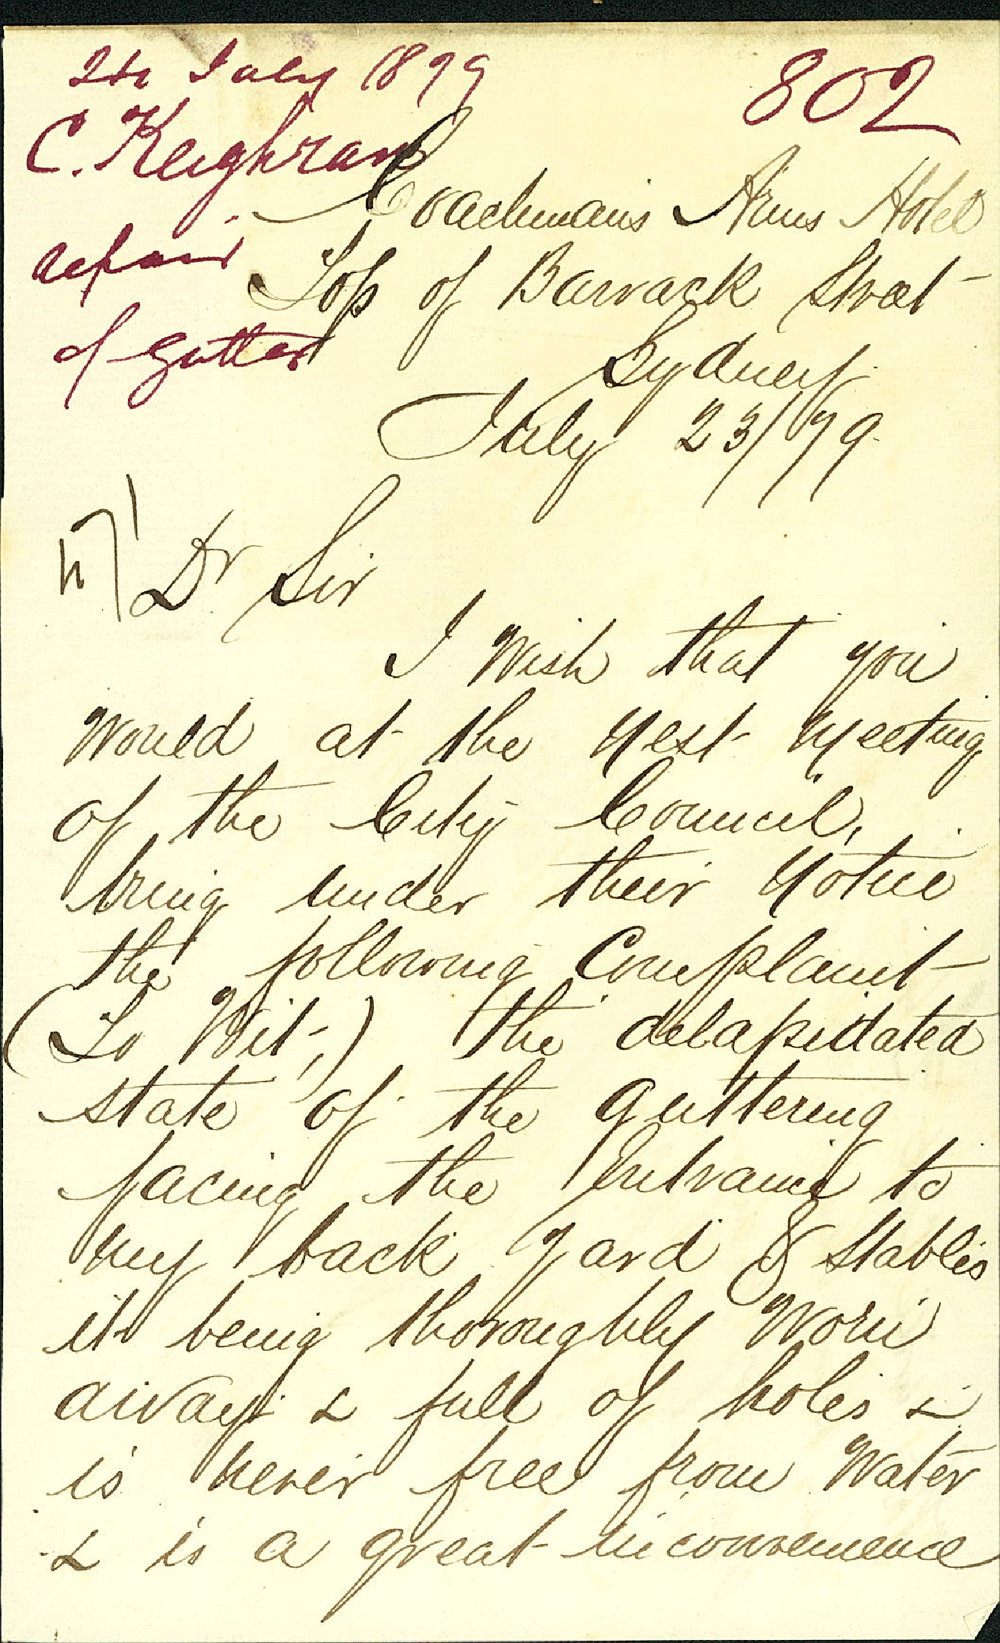 24 July 1879
802
C. Keighran
repair
of gutter
Coachman's Arms Hotel
Top of Barrack Street
Sydney
July 23/79
Dr Sir
I Wish that you
Would at the Next Meeting
of the City Council,
bring under their Notice
the following Complaint
(To Wit,) the delapidated
state of the guttering
facing the Entrance to
my back Yard & Stables
it being thoroughly Worn
away & full of holes &
is never free from Water
& is a great inconvenience